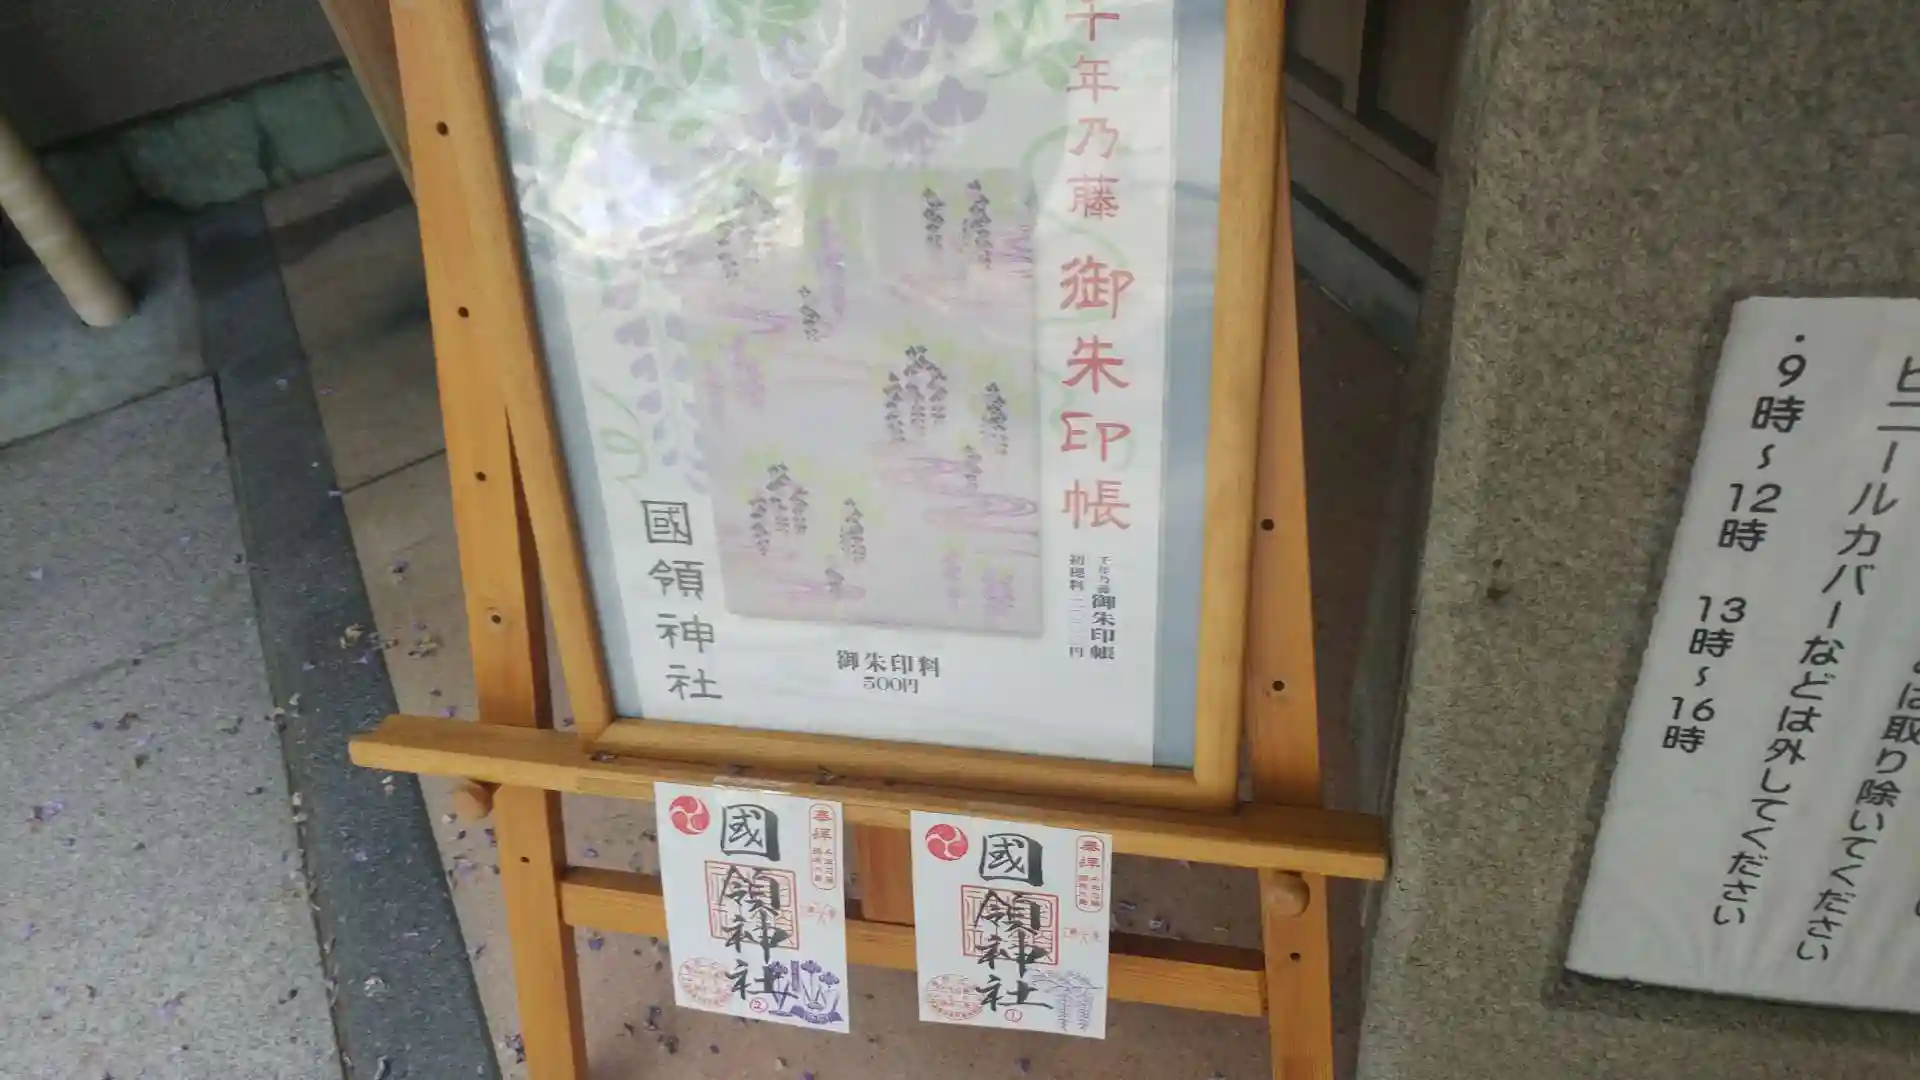 千年乃藤 御朱印帳
千年乃藤 御朱印帳
初穂料
円
御朱印料
500円
國領神社
奉拝
國領神社
②
奉拝
國領神社
①
は取り除いてください
ビニールカバーなどは外してください
・9時~12時 13時~16時